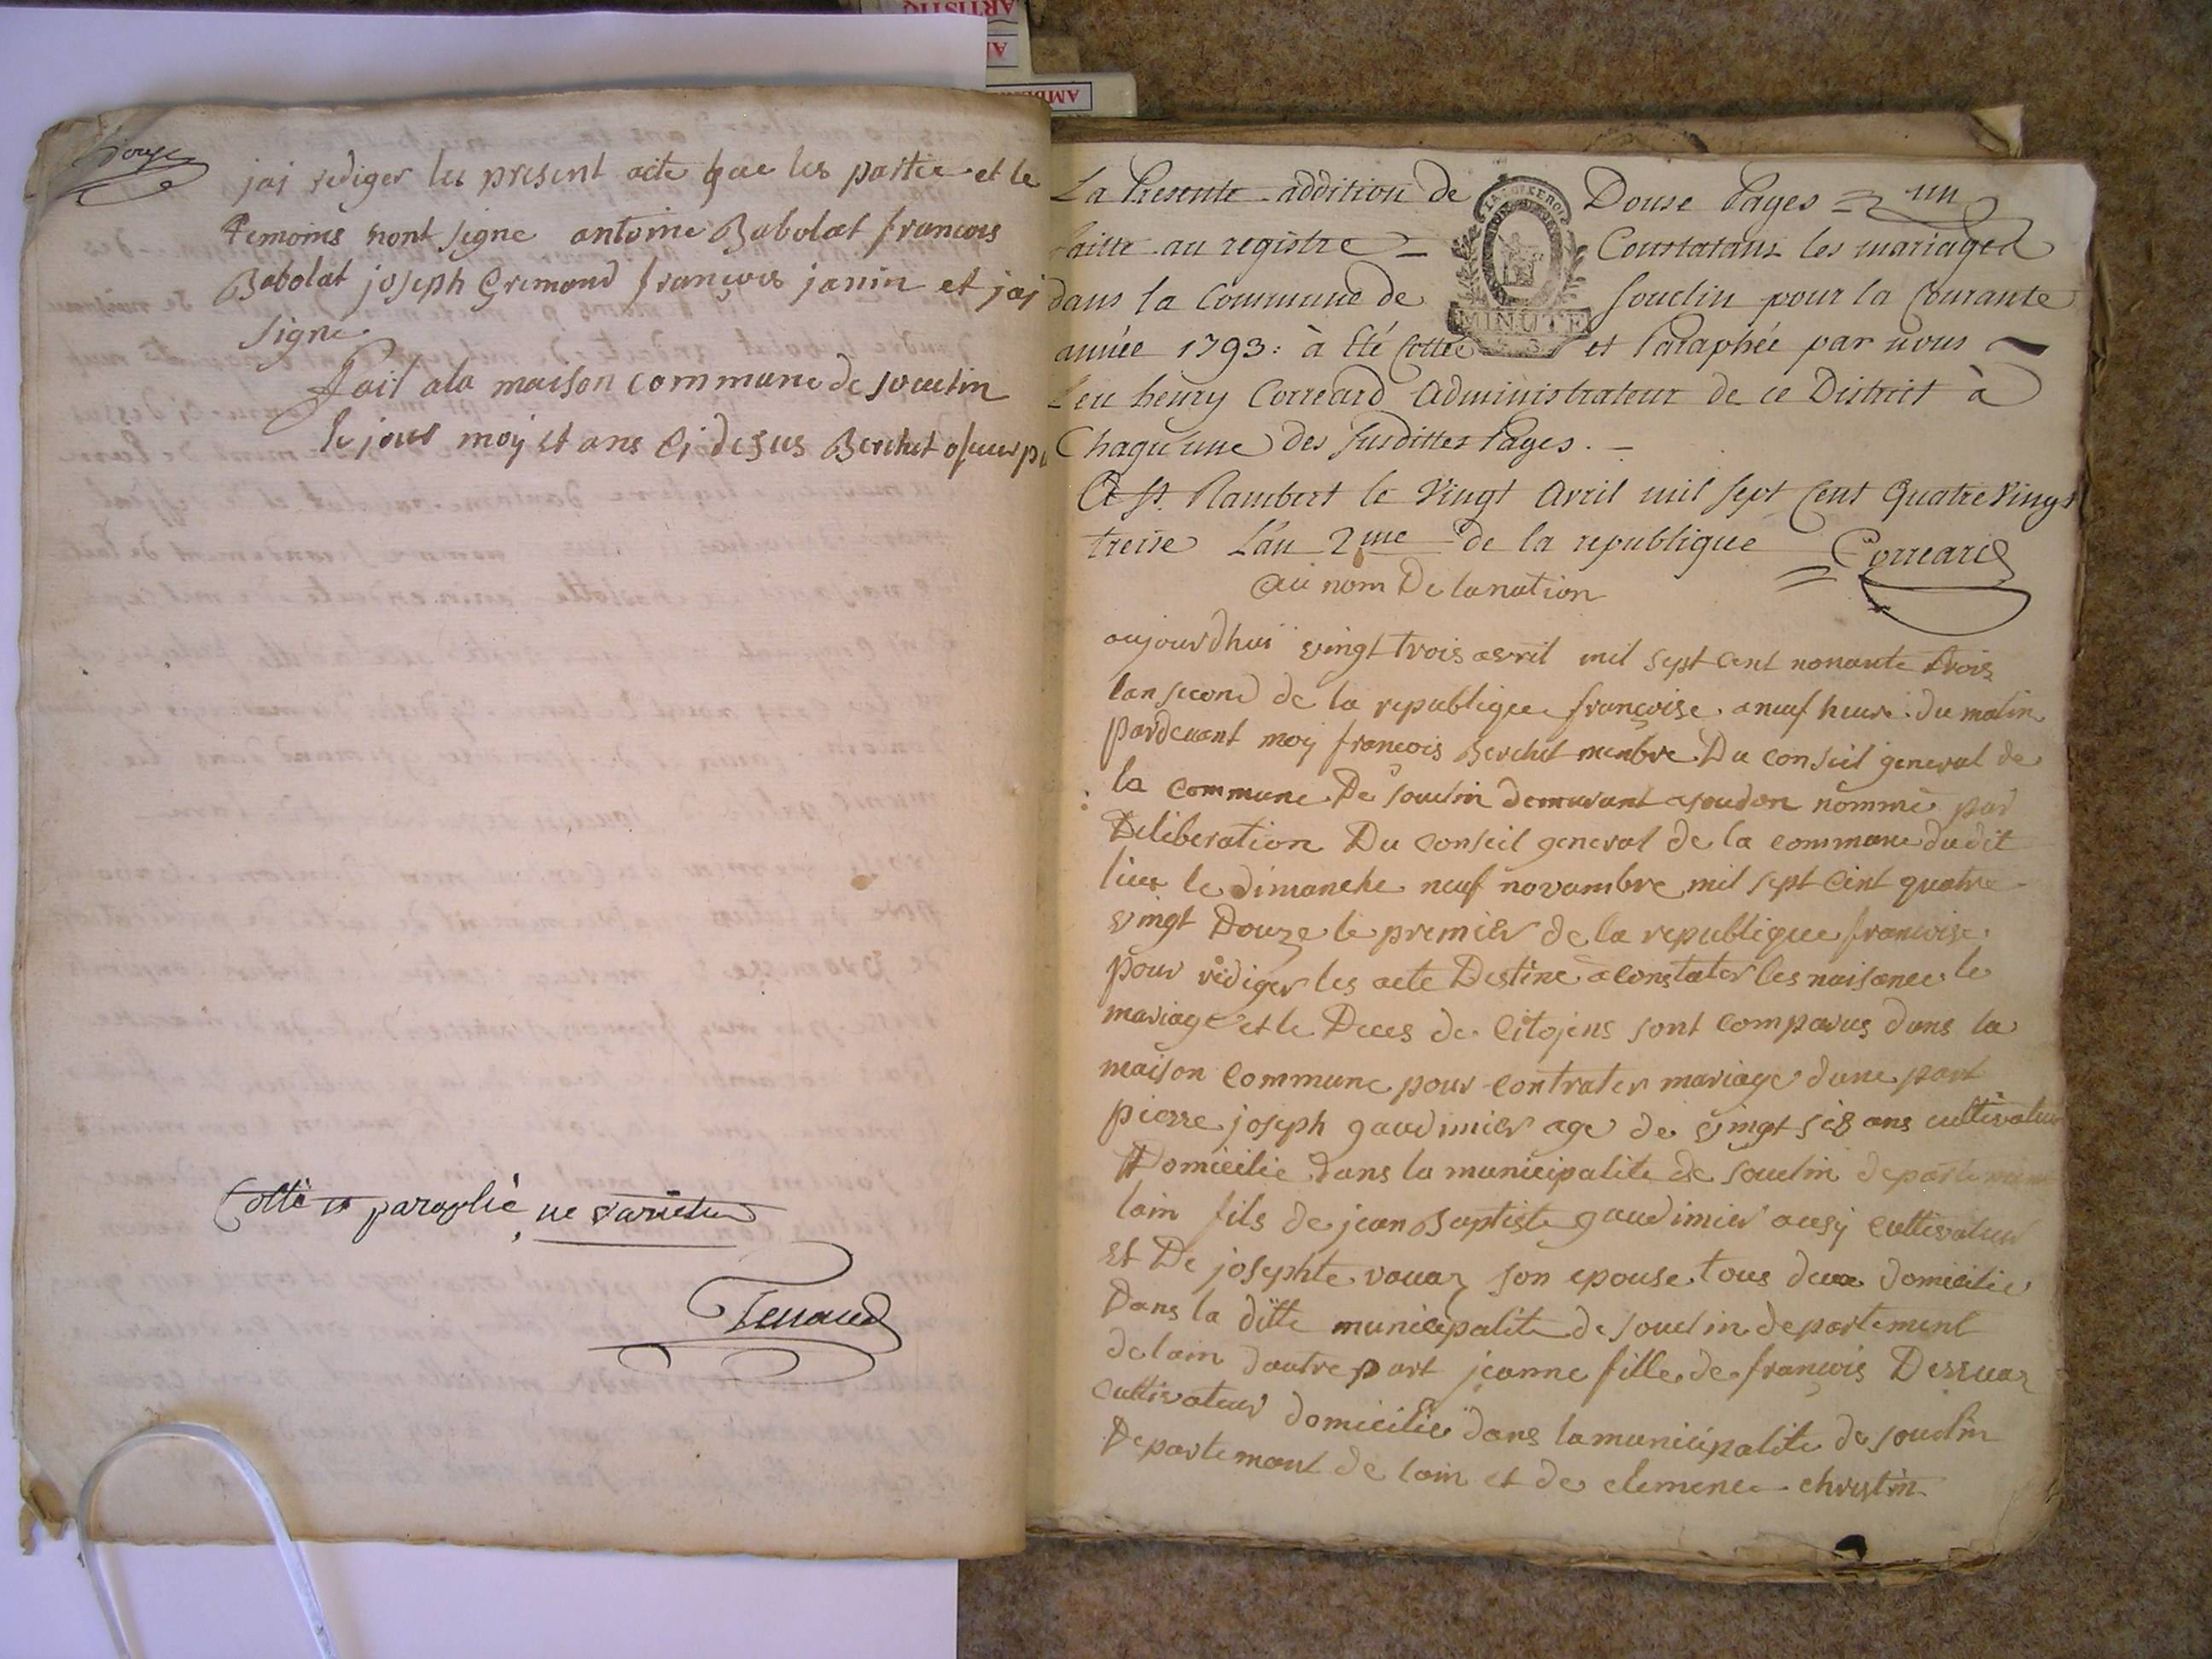 Douze
jai rediger les present acte que les partie et le
temoins nont signe antoine Babolat francois
Babolat joseph Grimand françois janin et jai
signe
Fait ala maison commune de souclin
le jour moy et ans Cj desus Berchet
Cotté et paraphé ne varietur
La Presente addition de Douse Pages un
faitte au registre Constatant les mariages
dans la Commune de Souclin pour la Courante
MINUTE
année 1793: à Eté Cottée et Paraphée par nous
Leu henry Correard Administrateur de ce District à
Chaqu'une des susdittes Pages.
A St. Rambert le Vingt Avril mil sept Cent Quatre Vingt
treise L'an 2me de la republique Correard
Au nom De la nation
aujourdhui vingt trois avril mil sept cent nonante trois
lan second de la republique françoise a neuf heure du matin
pardevant moy françois Berchet menbre Du conseil general de
la commune De souclin demurant a soudon nommé par
Deliberation Du conseil general de la commune dudit
lieu le dimanche neuf novambre mil sept cent quatre
vingt Douze le premier de la republique francoise
pour rediger les acte Destine a constater les naisance le
mariage et le Deces de Citojens sont comparus dans la
maison commune pour contrater mariage dune part
pierre joseph gaudimier age de vingt sis ans cultivateur
Domicilie dans la municipalite de souclin departement
lain fils de jean Baptiste gaudimier ausy cultivateur
et De josephte vouaz son epouse tous deux domicilie
Dans la ditte municipalite de souclin departement
de lain dautre part jeanne fille de françois Dessuaz
cultivateur domicilie dans la municipalite de souclin
Departemant de lain et de clemence christin